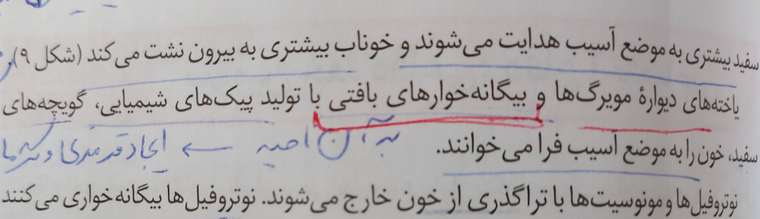 سفید بیشتری به موضع آسیب هدایت می‌شوند و خوناب بیشتری به بیرون نشت می‌کند (شکل ۹).
یاخته‌های دیوارهٔ مویرگ‌ها و بیگانه‌خوارهای بافتی با تولید پیک‌های شیمیایی، گویچه‌های
سفید، خون را به موضع آسیب فرا می‌خوانند.
به آن ← ایجاد
نوتروفیل‌ها و مونوسیت‌ها با تراگذری از خون خارج می‌شوند. نوتروفیل‌ها بیگانه‌خواری می‌کنند